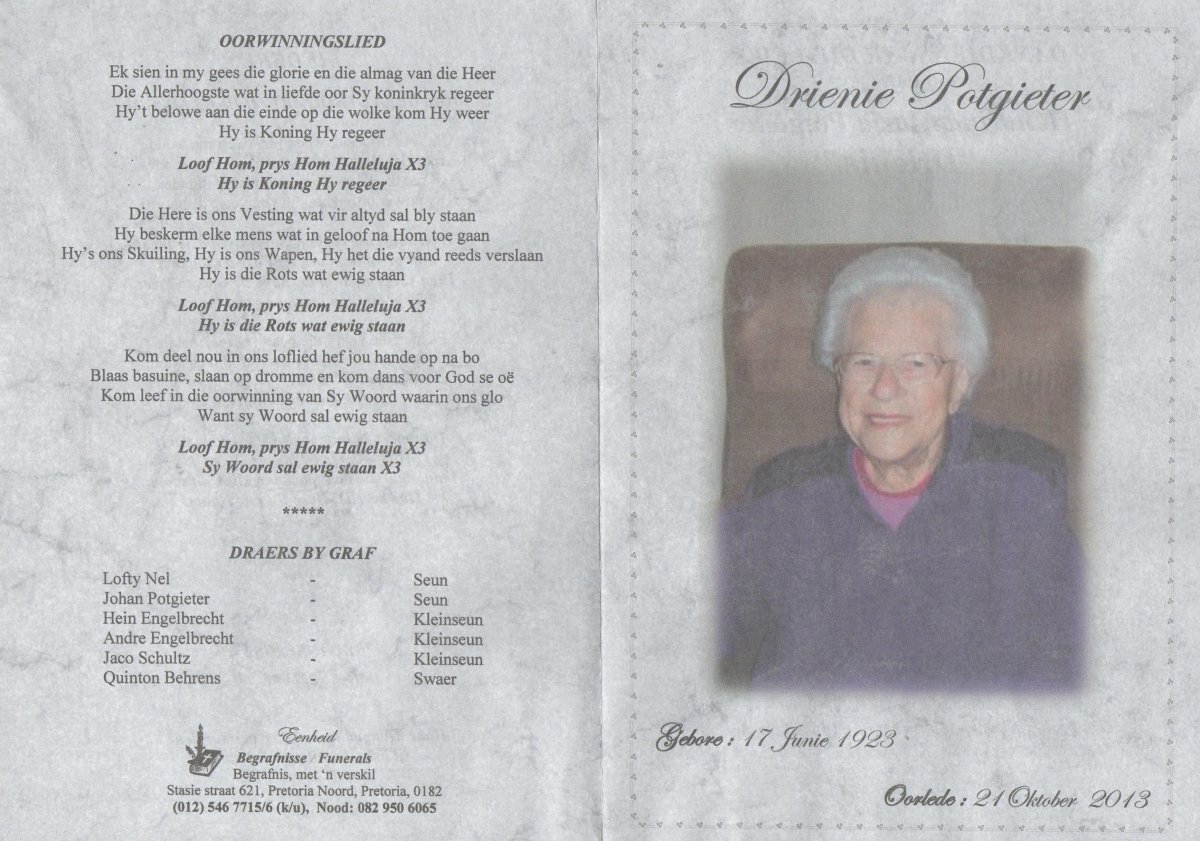 OORWINNINGSLIED
Ek sien in my gees die glorie en die almag van die Heer
Die Allerhoogste wat in liefde oor Sy koninkryk regeer
Hy’t belowe aan die einde op die wolke kom Hy weer
Hy is Koning Hy regeer
Loof Hom, prys Hom Halleluja X3
Hy is Koning Hy regeer
Die Here is ons Vesting wat vir altyd sal bly staan
Hy beskerm elke mens wat in geloof na Hom toe gaan
Hy’s ons Skuiling, Hy is ons Wapen, Hy het die vyand reeds verslaan
Hy is die Rots wat ewig staan
Loof Hom, prys Hom Halleluja X3
Hy is die Rots wat ewig staan
Kom deel nou in ons loflied hef jou hande op na bo
Blaas basuine, slaan op dromme en kom dans voor God se oë
Kom leef in die oorwinning van Sy Woord waarin ons glo
Want sy Woord sal ewig staan
Loof Hom, prys Hom Halleluja X3
Sy Woord sal ewig staan X3
*****
DRAERS BY GRAF
Lofty Nel - Seun
Johan Potgieter - Seun
Hein Engelbrecht - Kleinseun
Andre Engelbrecht - Kleinseun
Jaco Schultz - Kleinseun
Quinton Behrens - Swaer
Eenheid
Begrafnisse / Funerals
Begrafnis, met ‘n verskil
Stasie straat 621, Pretoria Noord, Pretoria, 0182
(012) 546 7715/6 (k/u), Nood: 082 950 6065
Drienie Potgieter
Gebore : 17 Junie 1923
Oorlede : 21 Oktober 2013